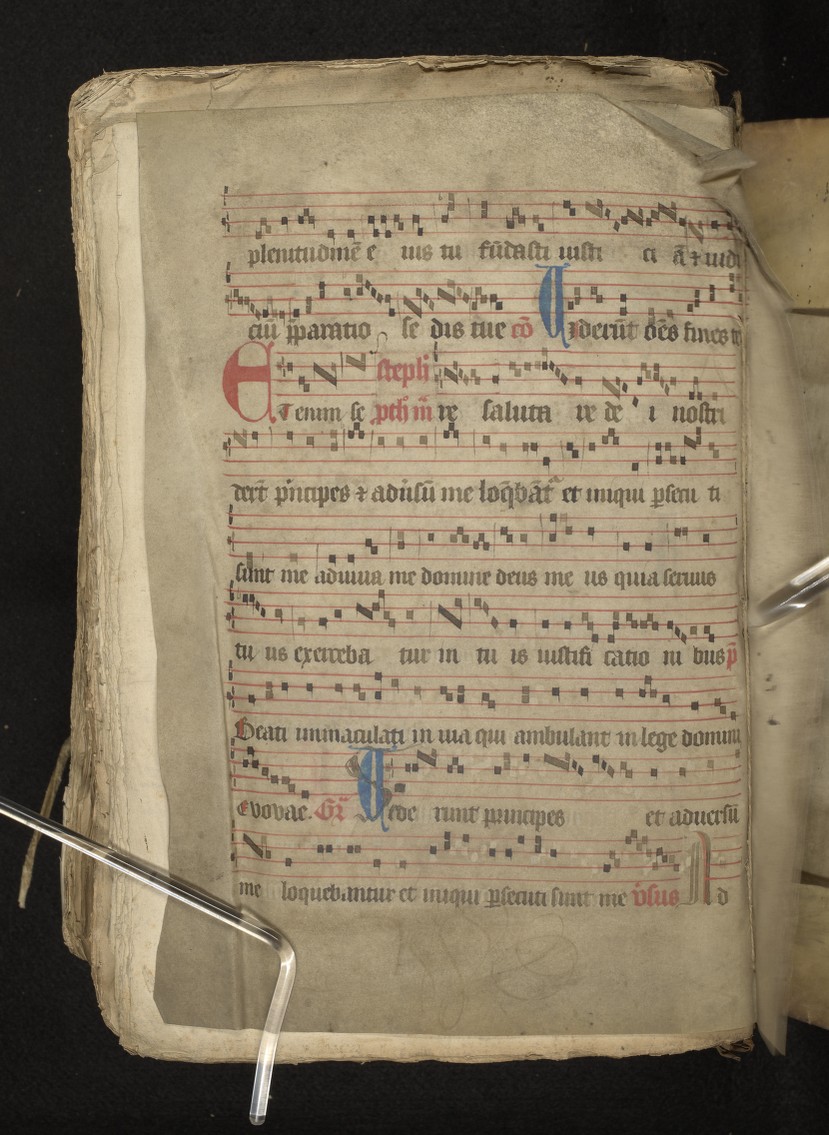 plenitudinē e ius tu fūdasti iusti ci ā ⁊ iudi
ciū p̄paratio se dis tue cō Viderūt oēs fines
stephi
ETenim se pth̄ m̄ re saluta re de i nostri
derēt pⁱncipes ⁊ adūsū me loq̄bāt et iniqui psecu ti
sunt me adiuua me domine deus me us quia seruus
tu us exerceba tur in tu is iustifi catio ni bus p̄
Beati immaculati in uia qui ambulant in lege domini
evovae. Gr̄ Sede runt principes et aduersū
me loquebantur et iniqui psecuti sunt me v̄sus Ad